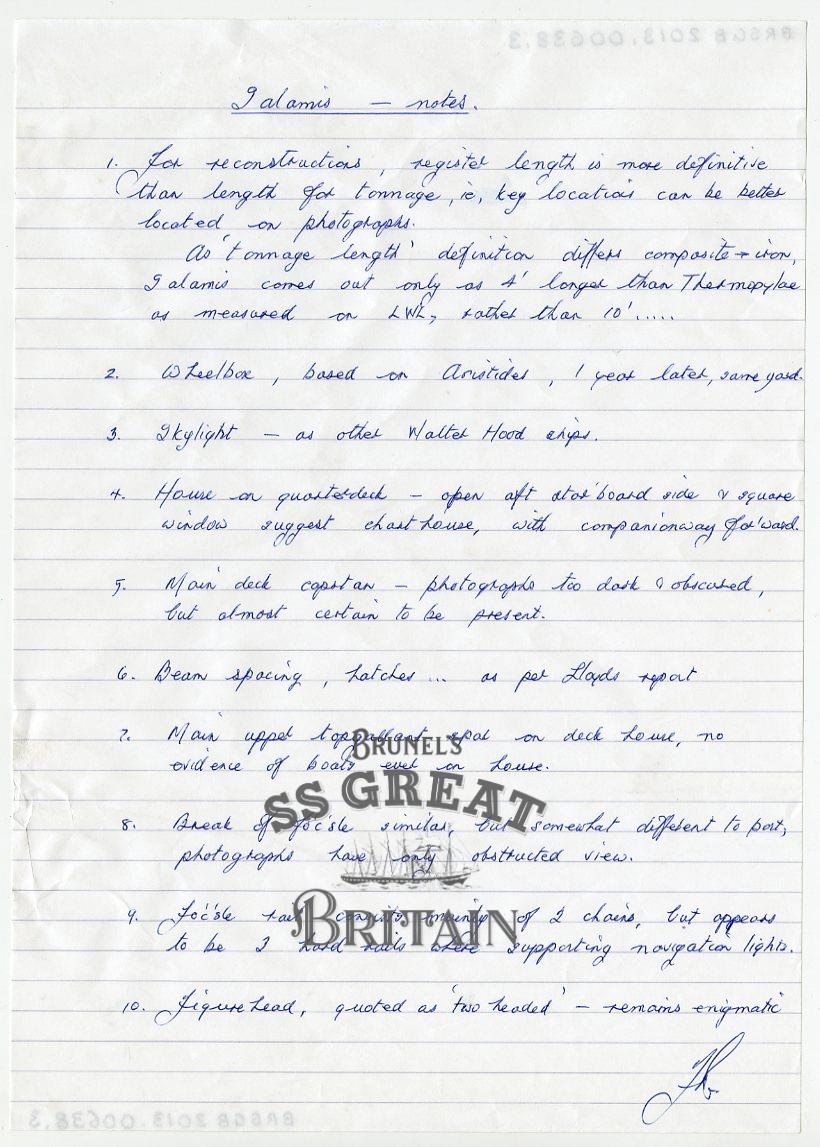 BRSGB 2013.00638.3
Salamis — notes.
1. For reconstructions, register length is more definitive
than length for tonnage, ie, key locations can be better
located on photographs.
As 'tonnage length' definition differs composite → iron,
Salamis comes out only as 4' longer than Thermopylae
as measured on LWL, rather than 10'.....
2. Wheelbox, based on Aristides, 1 year later, same yard.
3. Skylight — as other Walter Hood ships.
4. House on quarterdeck — open aft star'board side & square
window suggest chart house, with companionway for'ward.
5. Main deck capstan — photographs too dark & obscured,
but almost certain to be present.
6. Beam spacing, hatches ... as per Lloyds report
7. Main upper topgallant spar on deck house, no
evidence of boats ever on house.
8. Break of foc'sle similar, but somewhat different to port,
photographs have only obstructed view.
9. Foc'sle rail consists mainly of 2 chains, but appears
to be 2 hard rails where supporting navigation lights.
10. Figurehead, quoted as 'two headed' — remains enigmatic
BRUNEL'S
SS GREAT
BRITAIN
BRSGB 2013.00638.3